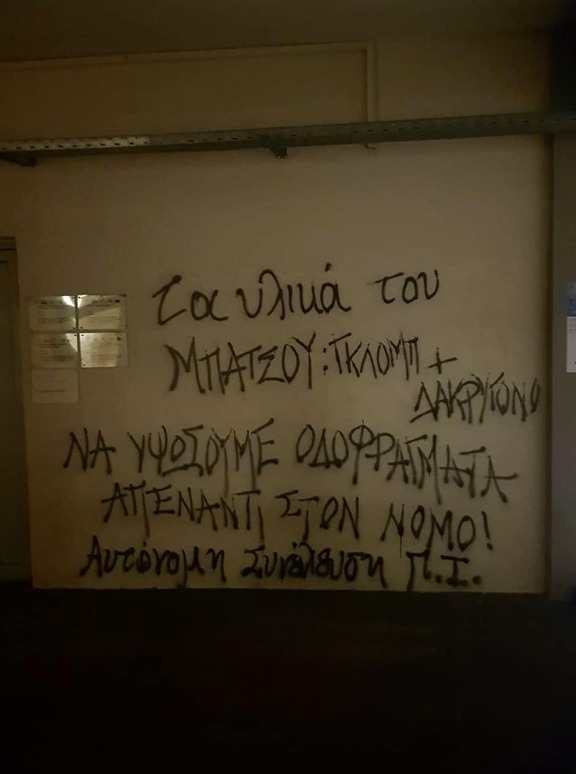 Τα υλικά του
ΜΠΑΤΣΟΥ: ΓΚΛΟΜΠ +
ΔΑΚΡΥΓΟΝΟ
ΝΑ ΥΨΩΣΟΥΜΕ ΟΔΟΦΡΑΓΜΑΤΑ
ΑΠΕΝΑΝΤΙ ΣΤΟΝ ΝΟΜΟ!
Αυτόνομη Συνέλευση Π.Ι.